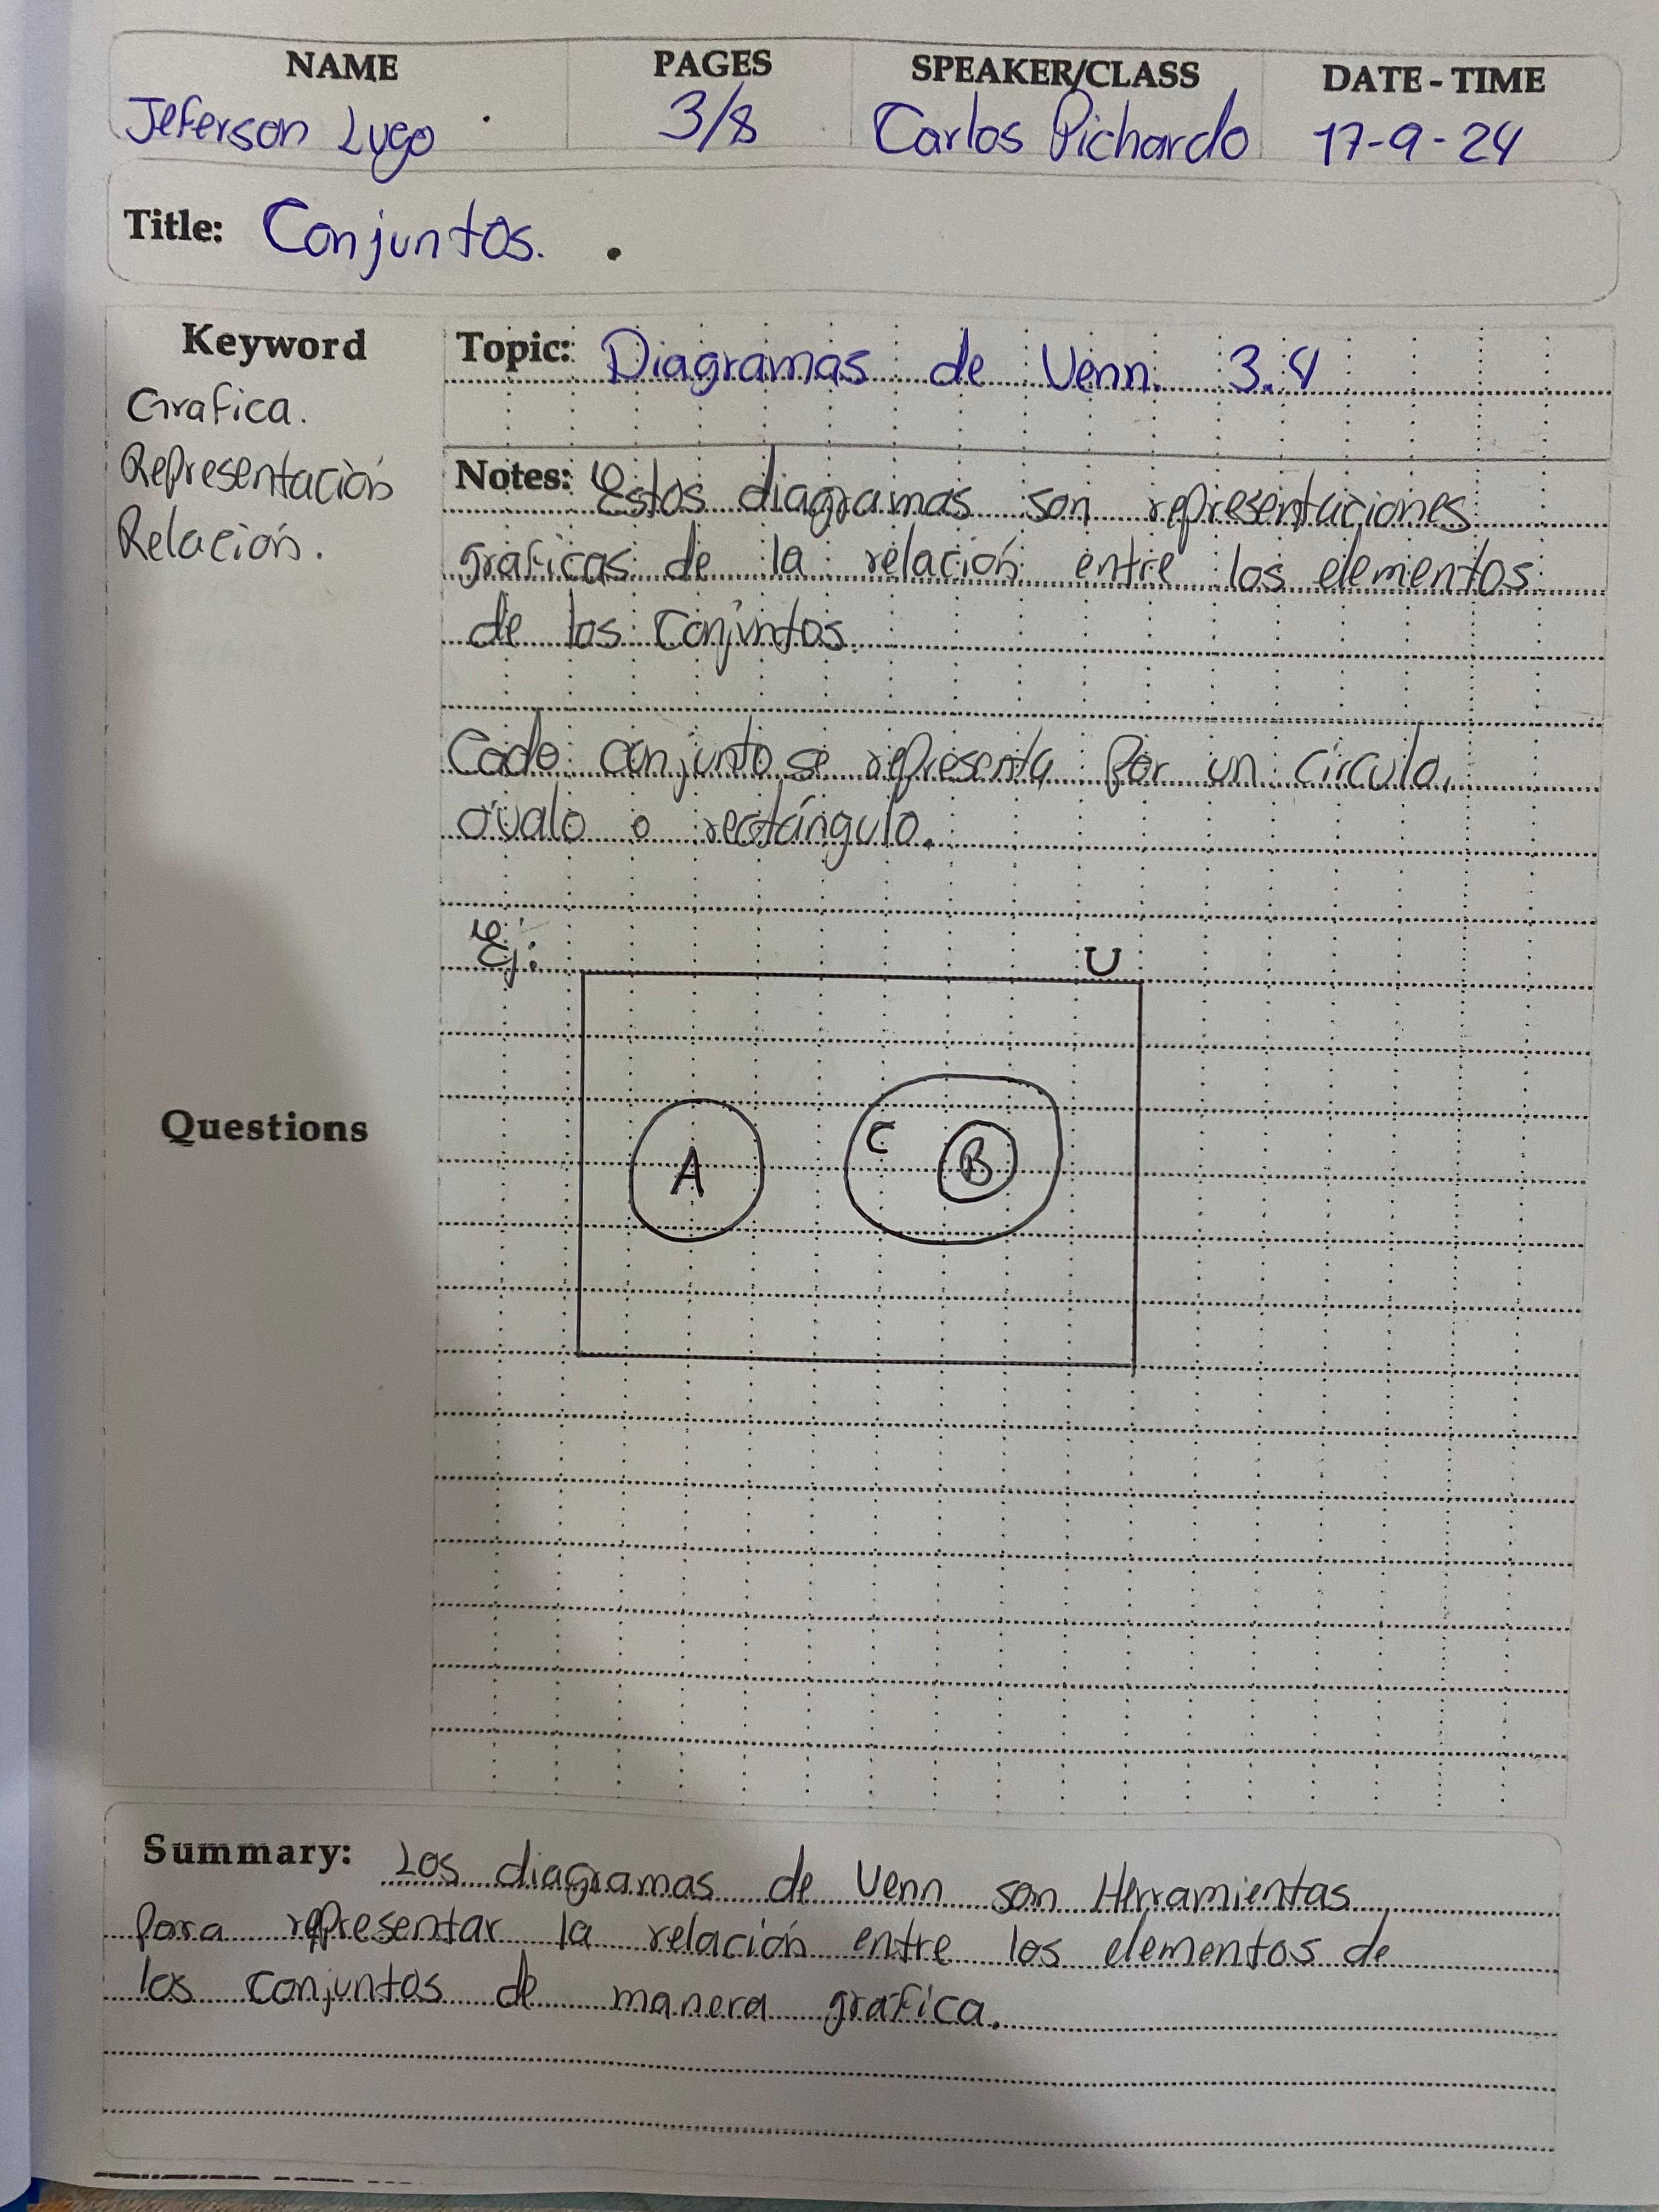 NAME PAGES SPEAKER/CLASS DATE - TIME
Jeferson Lugo 3/8 Carlos Pichardo 17-9-24
Title: Conjuntos.
Keyword
Grafica.
Representación
Relación.
Topic: Diagramas de Venn. 3.4
Notes: Estos diagramas son representaciones
gráficas de la relación entre los elementos
de los conjuntos.
Cada conjunto se representa por un círculo,
óvalo o rectángulo.
Ej:
U
A C B
Questions
Summary: Los diagramas de Venn son Herramientas
para representar la relación entre los elementos de
los conjuntos de manera grafica.